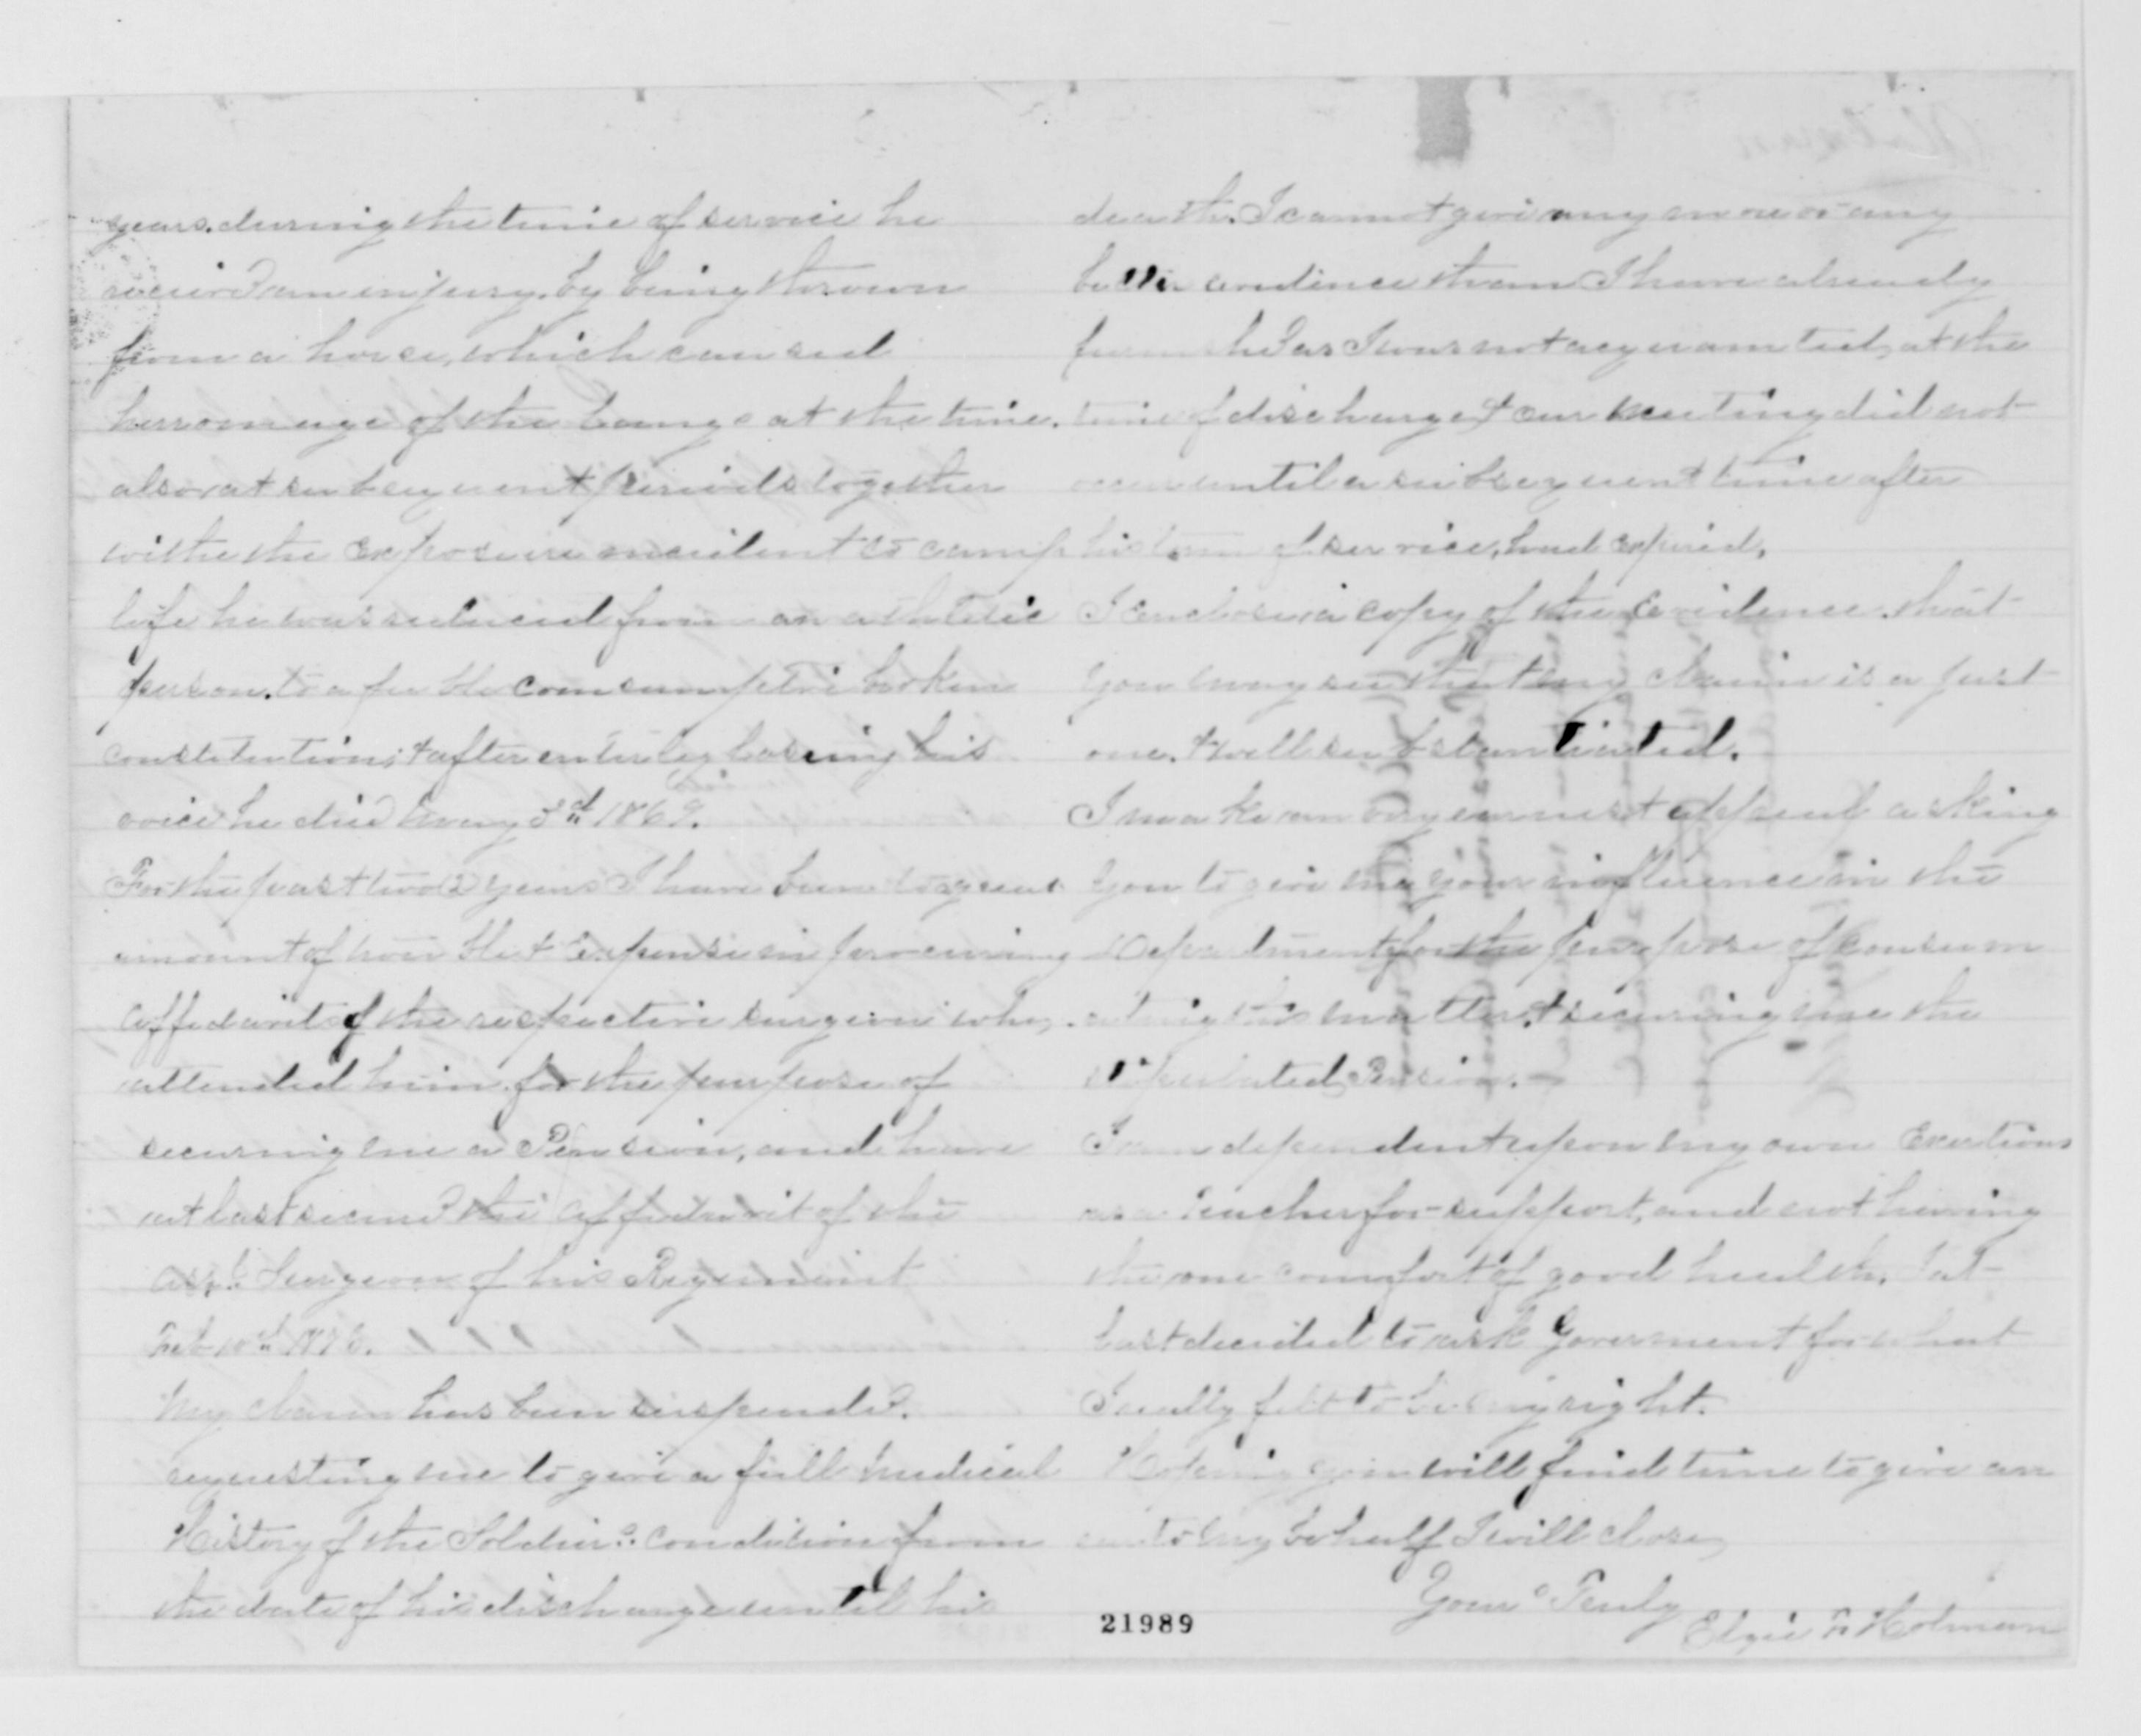 years. during the time of service he
receivd an injury, by being thrown
from a horse, which caused
hemorage of the lungs at the time.
also, at subsequent periods together
withe the Exposure insident to camp
life he was reduced from an athletic
person. to a feeble consumptive broken
constitution; & after entirley loosing his
voice he died 1869.
For the past two (2) years I have been to great
amount of trouble & Expense in procuring
affidavit of the respective surgeon who,
attended him. for the purpose of
securnig me a Pension, and have
at last secured the affidavit of the
Surgeon of his Regement
Feb 10th
My claim has been suspended.
requesting me to give a full medical
History of the Soldiers condition from
the date of his discharge until his
death. I cannot give any more or any
better evidence than I have already
furnished as I was not acquainted, at the
time of discharge & our meeting did not
occur until a subsequent time after
his term of service, had expired.
I Enclose, a copy of the Evidence. that
you may see that my claim is a just
one. & well substantiated.
I make an earnest appeal asking
you to give me your influence in the
Department for the purpose of consum
ating this matter, & securing me the
stipulated Pension.
I am dependent upon my own Exertions
as a Teacher for support, and not having
the one comfort of good health. I at
last decided to ask Goverment for what
I really felt to be my right.
Hopeing you will find time to give an
my behalf I will close,
Yours Truly
Holman
21989